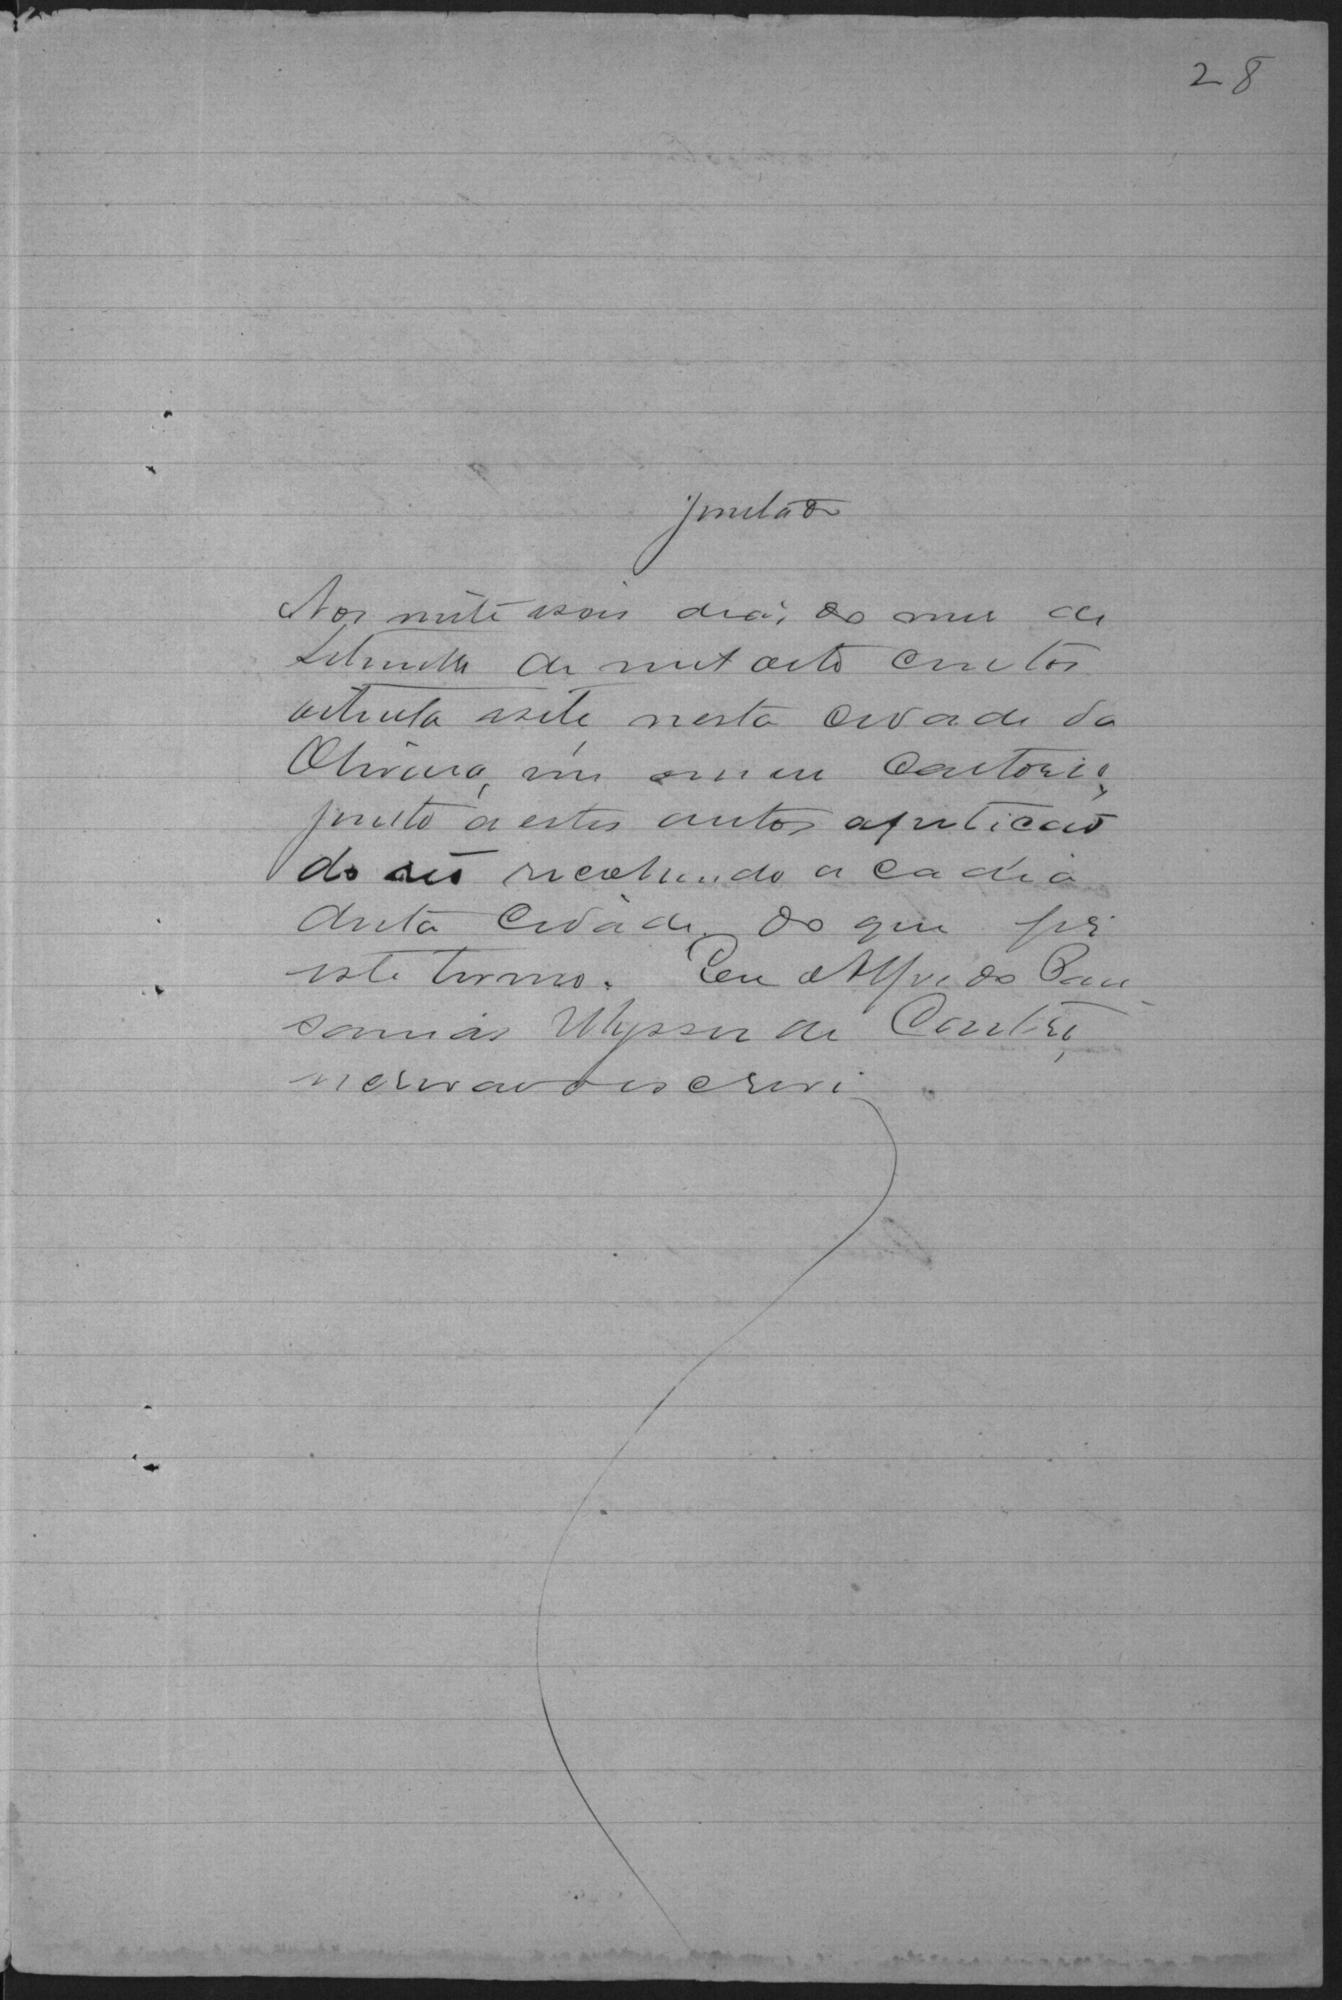 28
Juntada
Aos vinte e seis dias do mes de
Setembro de mil oito centos
oitenta e sete nesta Cidade da
Oliveira, em o meu Cartorio,
junto a estes autos a petição
do reo recolhendo a cadeia
desta Cidade. Do que fiz
este termo. Eu Alfredo Pau
sanias Ulysses de Castro,
escrivão o escrevi